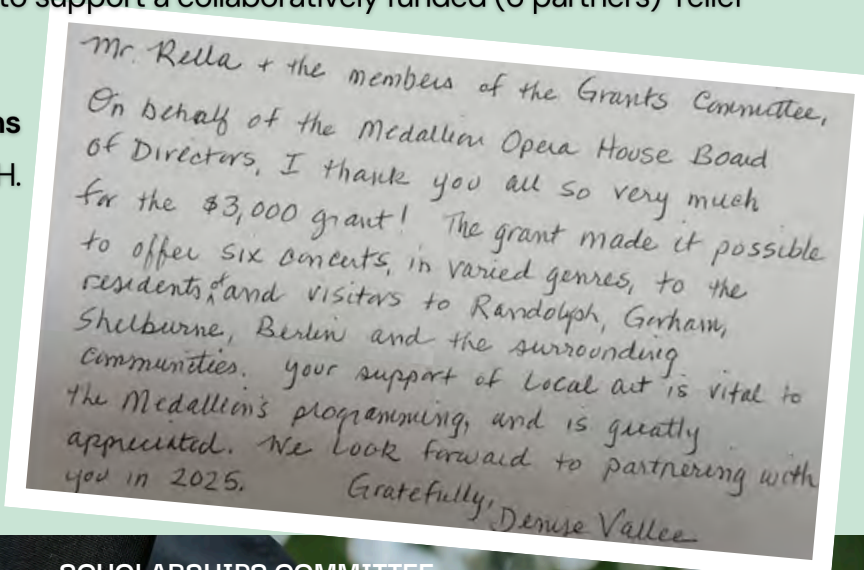 to support a collaboratively funded (6 partners) relief
ns
H.
Mr. Rella + the members of the Grants Committee,
On behalf of the Medallion Opera House Board
of Directors, I thank you all so very much
for the $3,000 grant! The grant made it possible
to offer six concerts, in varied genres, to the
residents, of and visitors to Randolph, Gorham,
Shelburne, Berlin and the surrounding
communities. Your support of local art is vital to
the Medallion's programming, and is greatly
appreciated. We look forward to partnering with
you in 2025. Gratefully,
Denise Vallee
SCHOLARSHIPS COMMITTEE